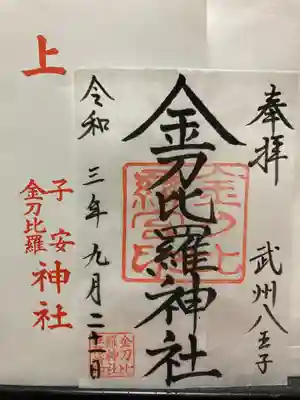 奉拝　武州八王子
金刀比羅神社
金刀比
羅宮印
令和三年九月二十一日
金刀比
羅神社
上
子安
金刀比羅
神社